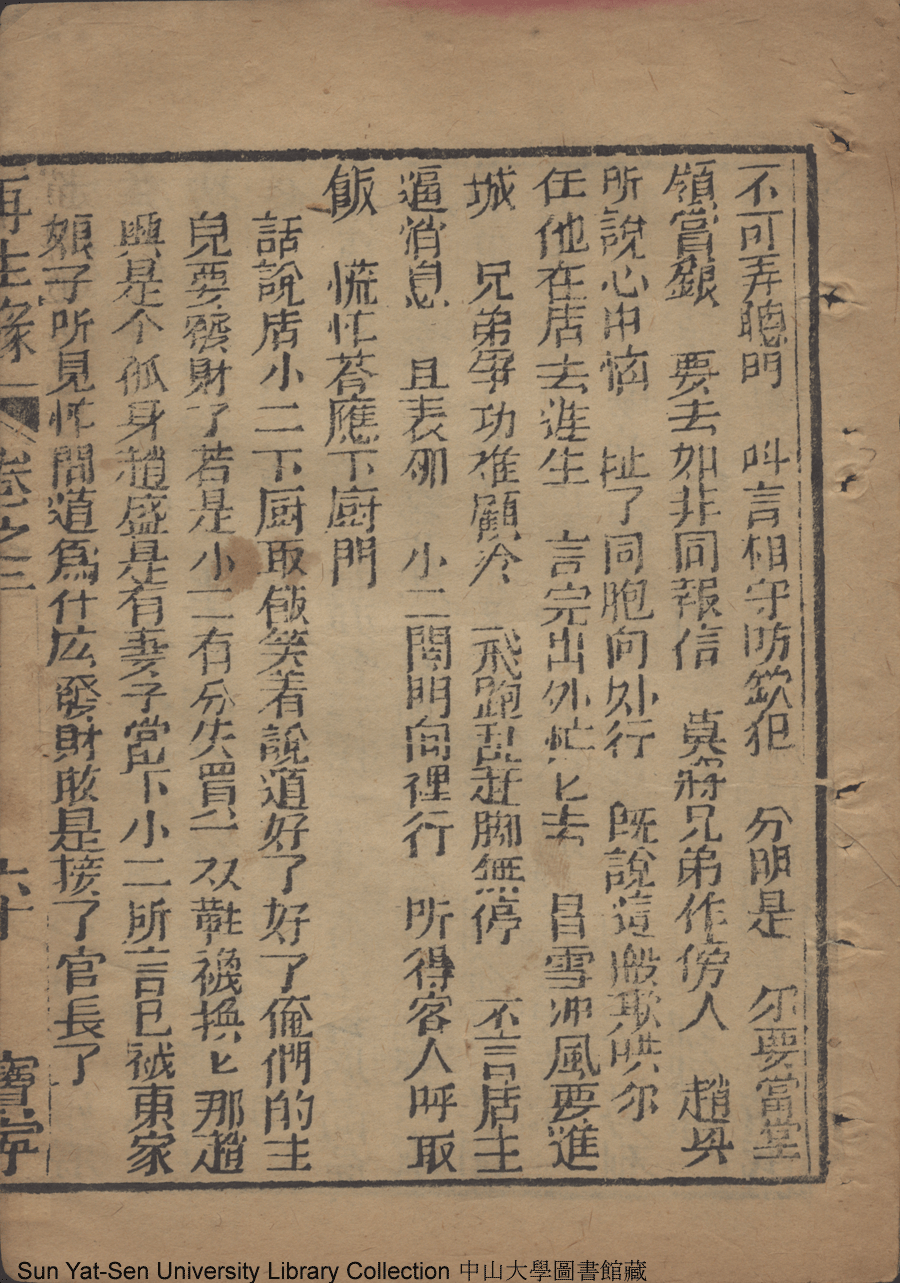 不可弄聰門　叫言相守防欽犯　分明是　尔要當堂
領賞銀　要去如非同報信　莫將兄弟作傍人　趙兴
所說心中惱　扯了同胞向外行　既說這般欺哄尔
任他在店去逃生　言完出外忙匕去　冒雪冲風要進
城　兄弟爭功难顧冷　飛跑乱赶脚無停　不言店主
逼消息　且表𨚫　小二開門向裡行　听得客人呼取
飯　慌忙荅應下厨門
話說店小二下厨取飯笑着說道好了好了俺們的主
兒要發財了若是小二有分先買一双鞋襪換匕那趙
興是个孤身趙盛是有妻子當下小二所言已被東家
娘子听見忙問道爲什広發財敢是接了官長了
再生緣　卷之三　六十　寶寧
Sun Yat-Sen University Library Collection 中山大學圖書館藏